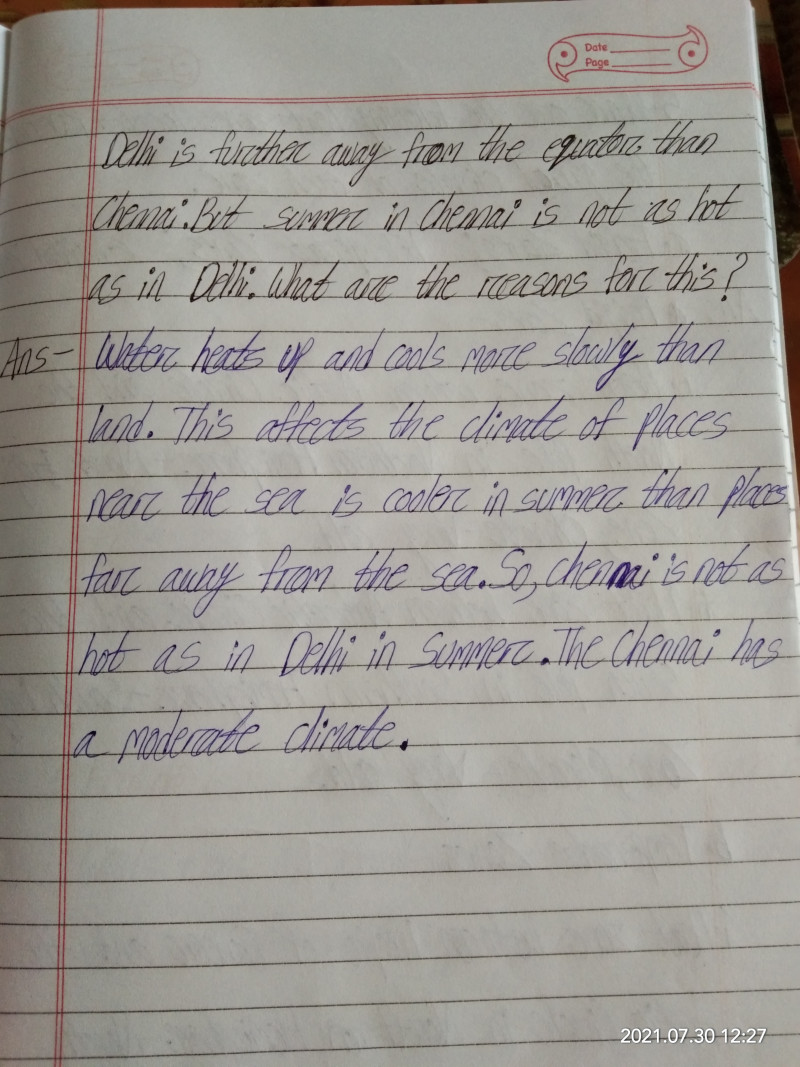 Date
Page
Delhi is further away from the equator than
Chennai. But summer in Chennai is not as hot
as in Delhi. What are the reasons for this?
Ans- Water heats up and cools more slowly than
land. This affects the climate of places
near the sea is cooler in summer than places
far away from the sea. So, Chennai is not as
hot as in Delhi in Summer. The Chennai has
a moderate climate.
2021.07.30 12:27